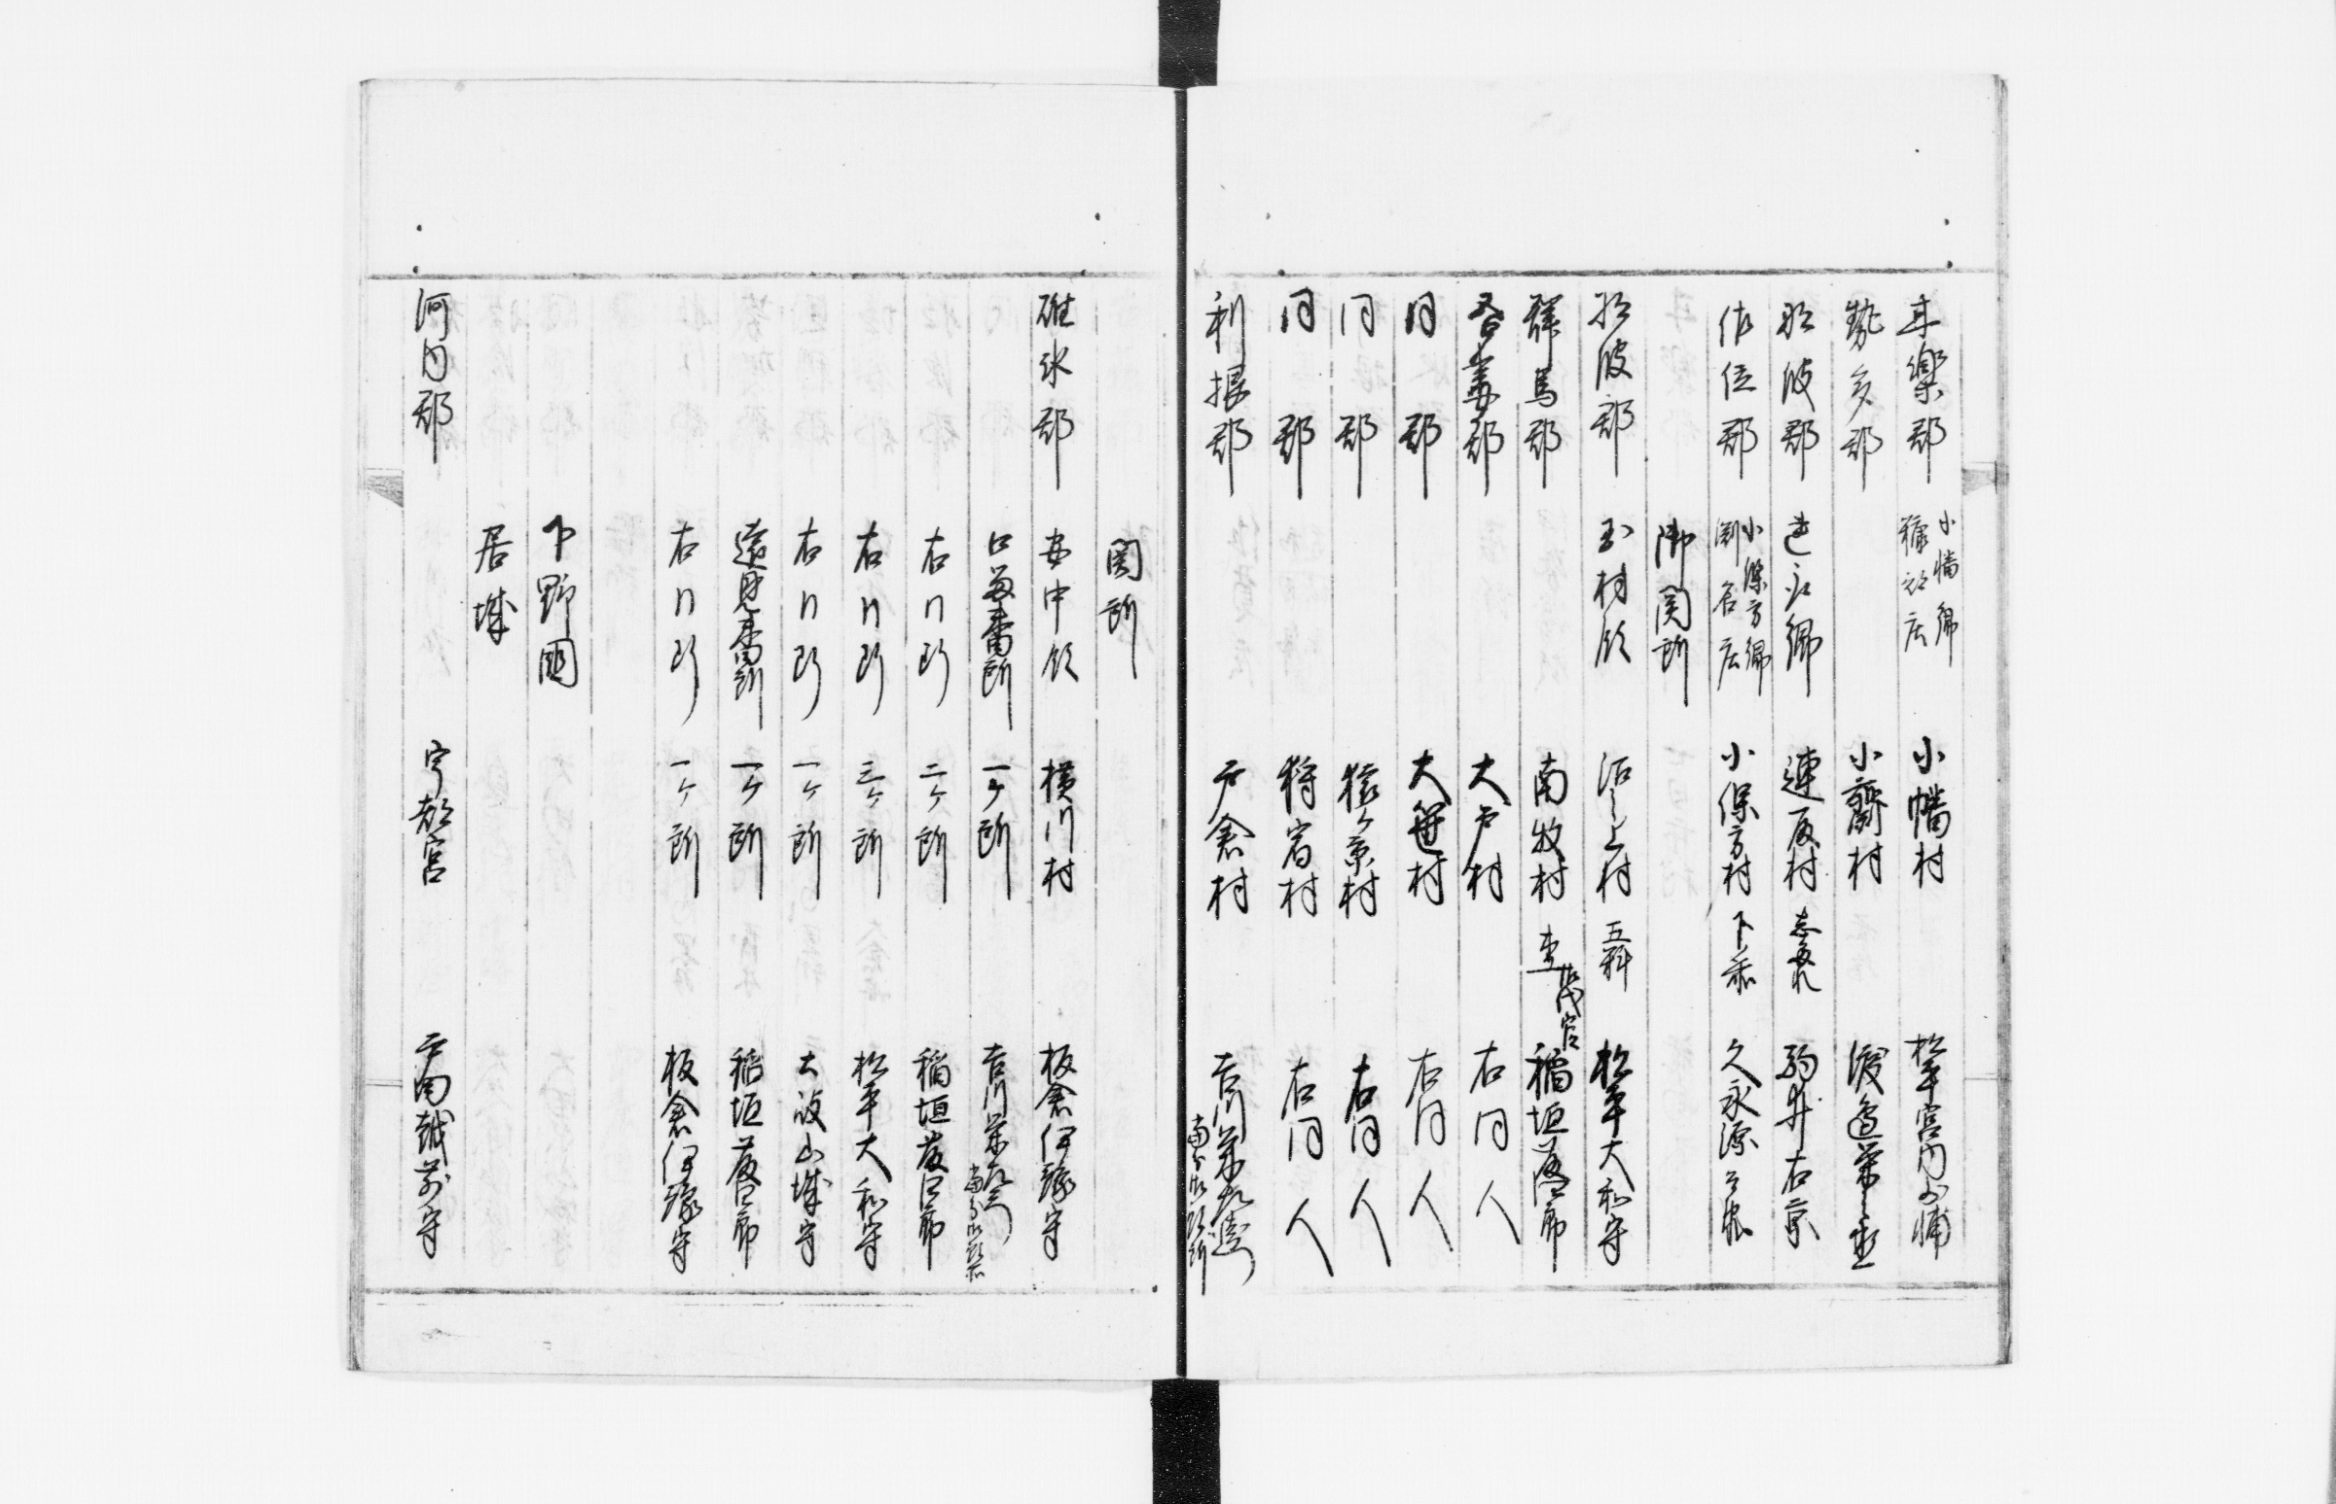 甘樂郡 小幡郷 小幡村 松平宮内少輔
勢多郡 小齋村 渡邉
那波郡 郷 連取村 駒井右京
佐位郡 小保方郷 渕名庄 小保方村 久永源
御関所
那波郡 玉村領 沼之上村 五料 松平大和守
群馬郡 南牧村 杢 御代官 稲垣藤四郎
吾妻郡 大戸村 右同人
同郡 大笹村 右同人
同郡 猿ヶ京村 右同人
同郡 狩宿村 右同人
利根郡 戸倉村 吉川栄左衛門
関所
碓氷郡 安中領 横川村 板倉伊豫守
口留番所 一ヶ所 吉川栄左衛門
右同断 二ヶ所 稲垣藤四郎
右同断 三ヶ所 松平大和守
右同断 一ヶ所 土岐山城守
遠見番所 一ヶ所 稲垣藤四郎
右同断 一ヶ所 板倉伊豫守
下野國
居城
河内郡 宇都宮 戸田越前守